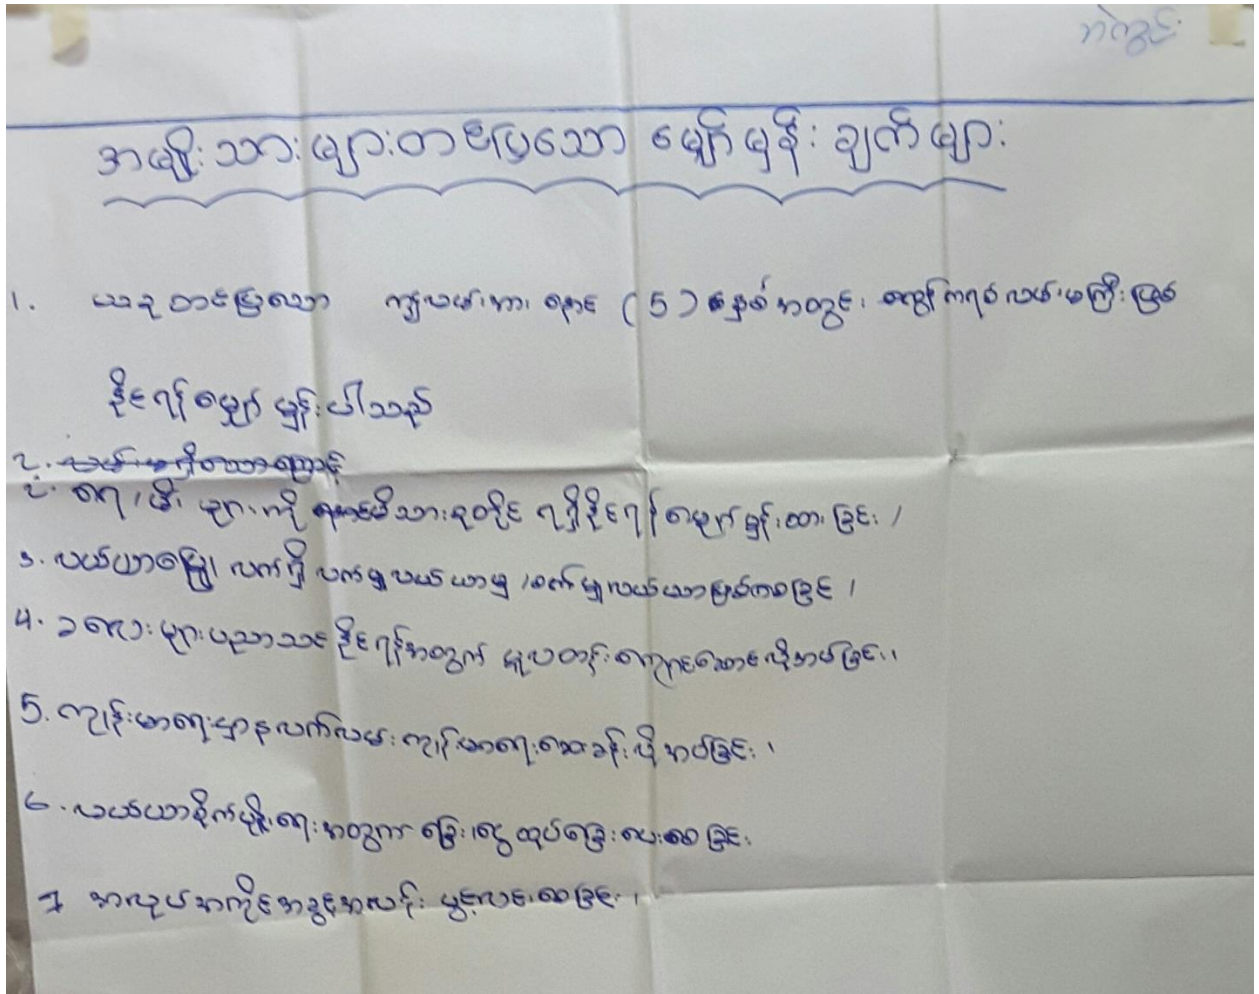 ကဲကွင်း
အမျိုးသားများတင်ပြသော မျှော်မှန်းချက်များ
1. ယခုတင်ပြသော ကျွဲလမ်းအား နောင် (5) နှစ်အတွင်း ကွန်ကရစ်လမ်းမကြီးဖြစ်
နိုင်ရန် မျှော်မှန်းပါသည်
2. လမ်းမရှိသောကြောင့်
2. ရေ၊ မီး များကို အိမ်သားစုတိုင်း ရရှိနိုင်ရန် မျှော်မှန်းထားခြင်း၊
3. လယ်ယာမြေ၊ လက်ရှိ လက်မှုလယ်ယာမှ၊ စက်မှုလယ်ယာဖြစ်စေခြင်း၊
4. ခလေးများပညာသင်နိုင်ရန်အတွက် မူလတန်းကျောင်းဆောင်လိုအပ်ခြင်း၊
5. ကျန်းမာရေးဌာနလက်လမ်းကျန်းမာရေးဆေးခန်းလိုအပ်ခြင်း၊
6. လယ်ယာစိုက်ပျိုးရေးအတွက် ချေးငွေထုတ်ချေးပေးစေခြင်း
7 အလုပ်အကိုင်အခွင့်အလမ်း ပွင့်လင်းစေခြင်း၊